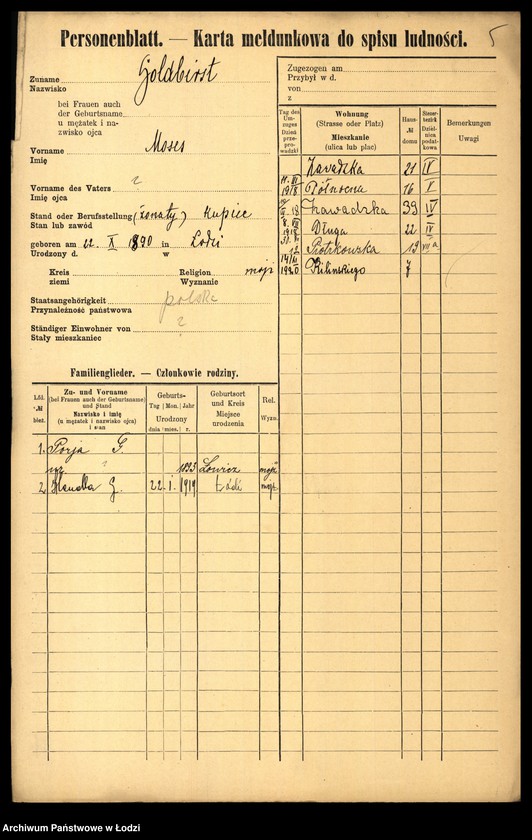 Personenblatt. — Karta meldunkowa do spisu ludności.
5
Zuname Goldbirst
Nazwisko
bei Frauen auch
der Geburtsname
u mężatek i na-
zwisko ojca
Vorname Moses
Imię
Vorname des Vaters ?
Imię ojca
Stand oder Berufsstellung (żonaty) kupiec
Stan lub zawód
geboren am 22. X 1890 in Łodzi
Urodzony d. w
Kreis Religion mojż
ziemi Wyznanie
Staatsangehörigkeit polska
Przynależność państwowa
Ständiger Einwohner von ?
Stały mieszkaniec
Familienglieder. — Członkowie rodziny.
Lfd. № bież.
Zu- und Vorname
(bei Frauen auch der Geburtsname)
und Stand
Nazwisko i imię
(u mężatek i nazwisko ojca)
i stan
Geburts-
Tag | Mon. | Jahr
Urodzony
dnia | mies. | r.
Geburtsort
und Kreis
Miejsce
urodzenia
Rel.
Wyzn.
1. G.
? 1893 Łowicz mojż
2 G. 22 I. 1919 Łódź mojż.
Zugezogen am
Przybył w d.
von
z
Tag des
Um-
zuges
Dzień
prze-
prowadzki
Wohnung
(Strasse oder Platz)
Mieszkanie
(ulica lub plac)
Haus-
№
domu
Steuer-
bezirk
Dziel-
nica
podat-
kowa
Bemerkungen
Uwagi
Zavadzka 21 IV
1918 Północna 16 I
Zawadzka 39 IV
1918 Długa 22 IV
Piotrkowska 19 VII a
1920 Kilinskiego 7
Archiwum Państwowe w Łodzi